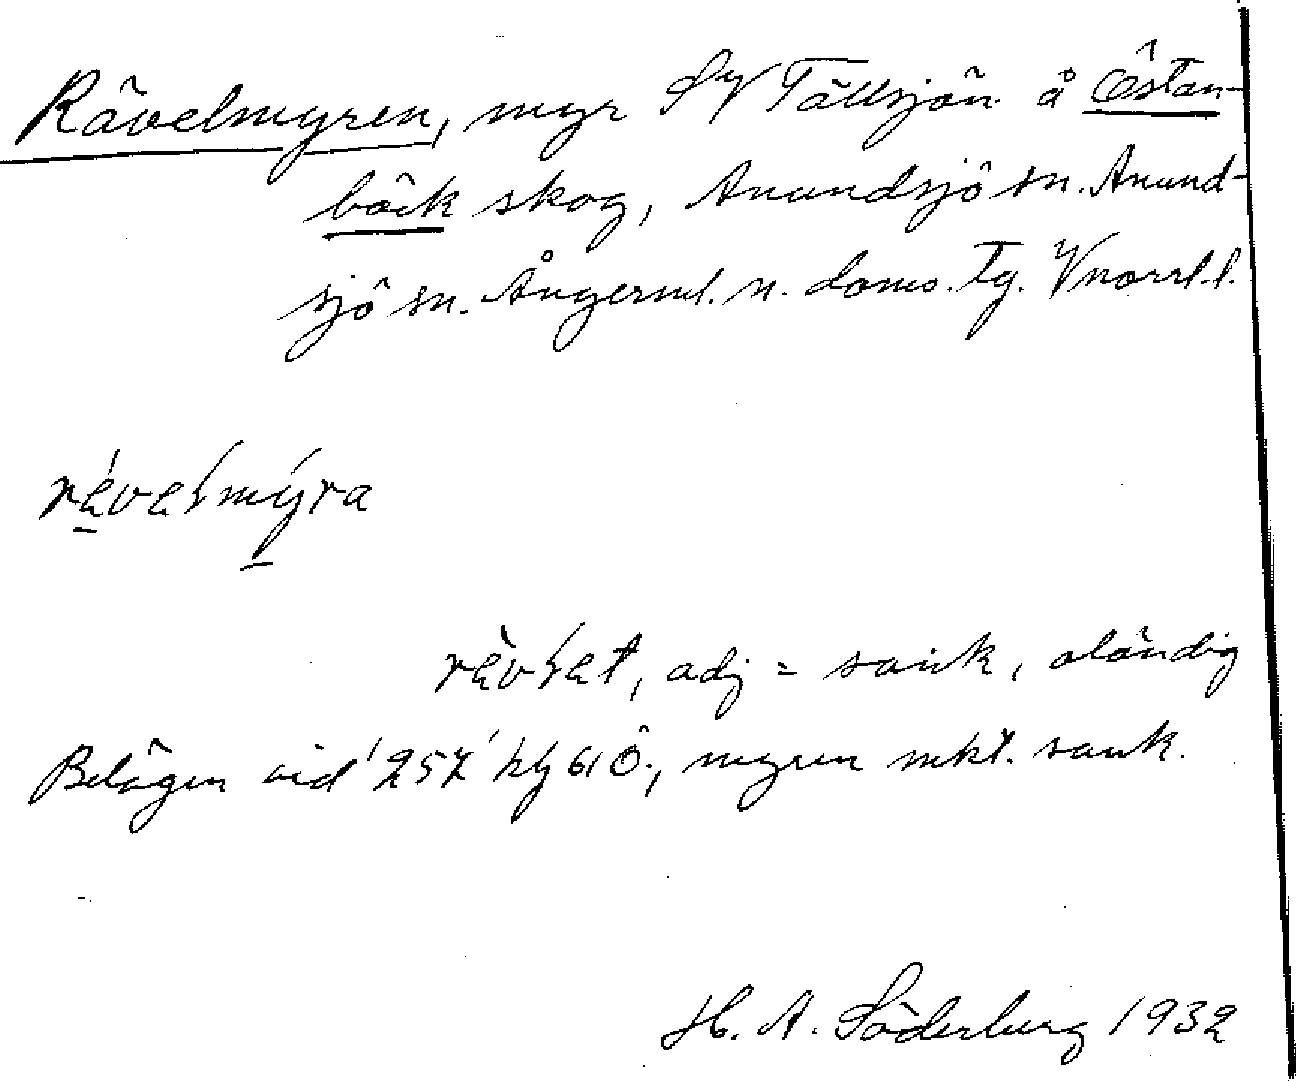 Rävelmyren, myr SV Tällsjön å Östan-
bäck skog, Anundsjö sn. Anund-
sjö sn. Ångerml. n. doms. Tg. Vnorrl. l.
rävelmyra
rävlet, adj = sank, oländig
Belägen vid 257 hg 61 Ö., myren mkt. sank.
H. A. Söderberg 1932